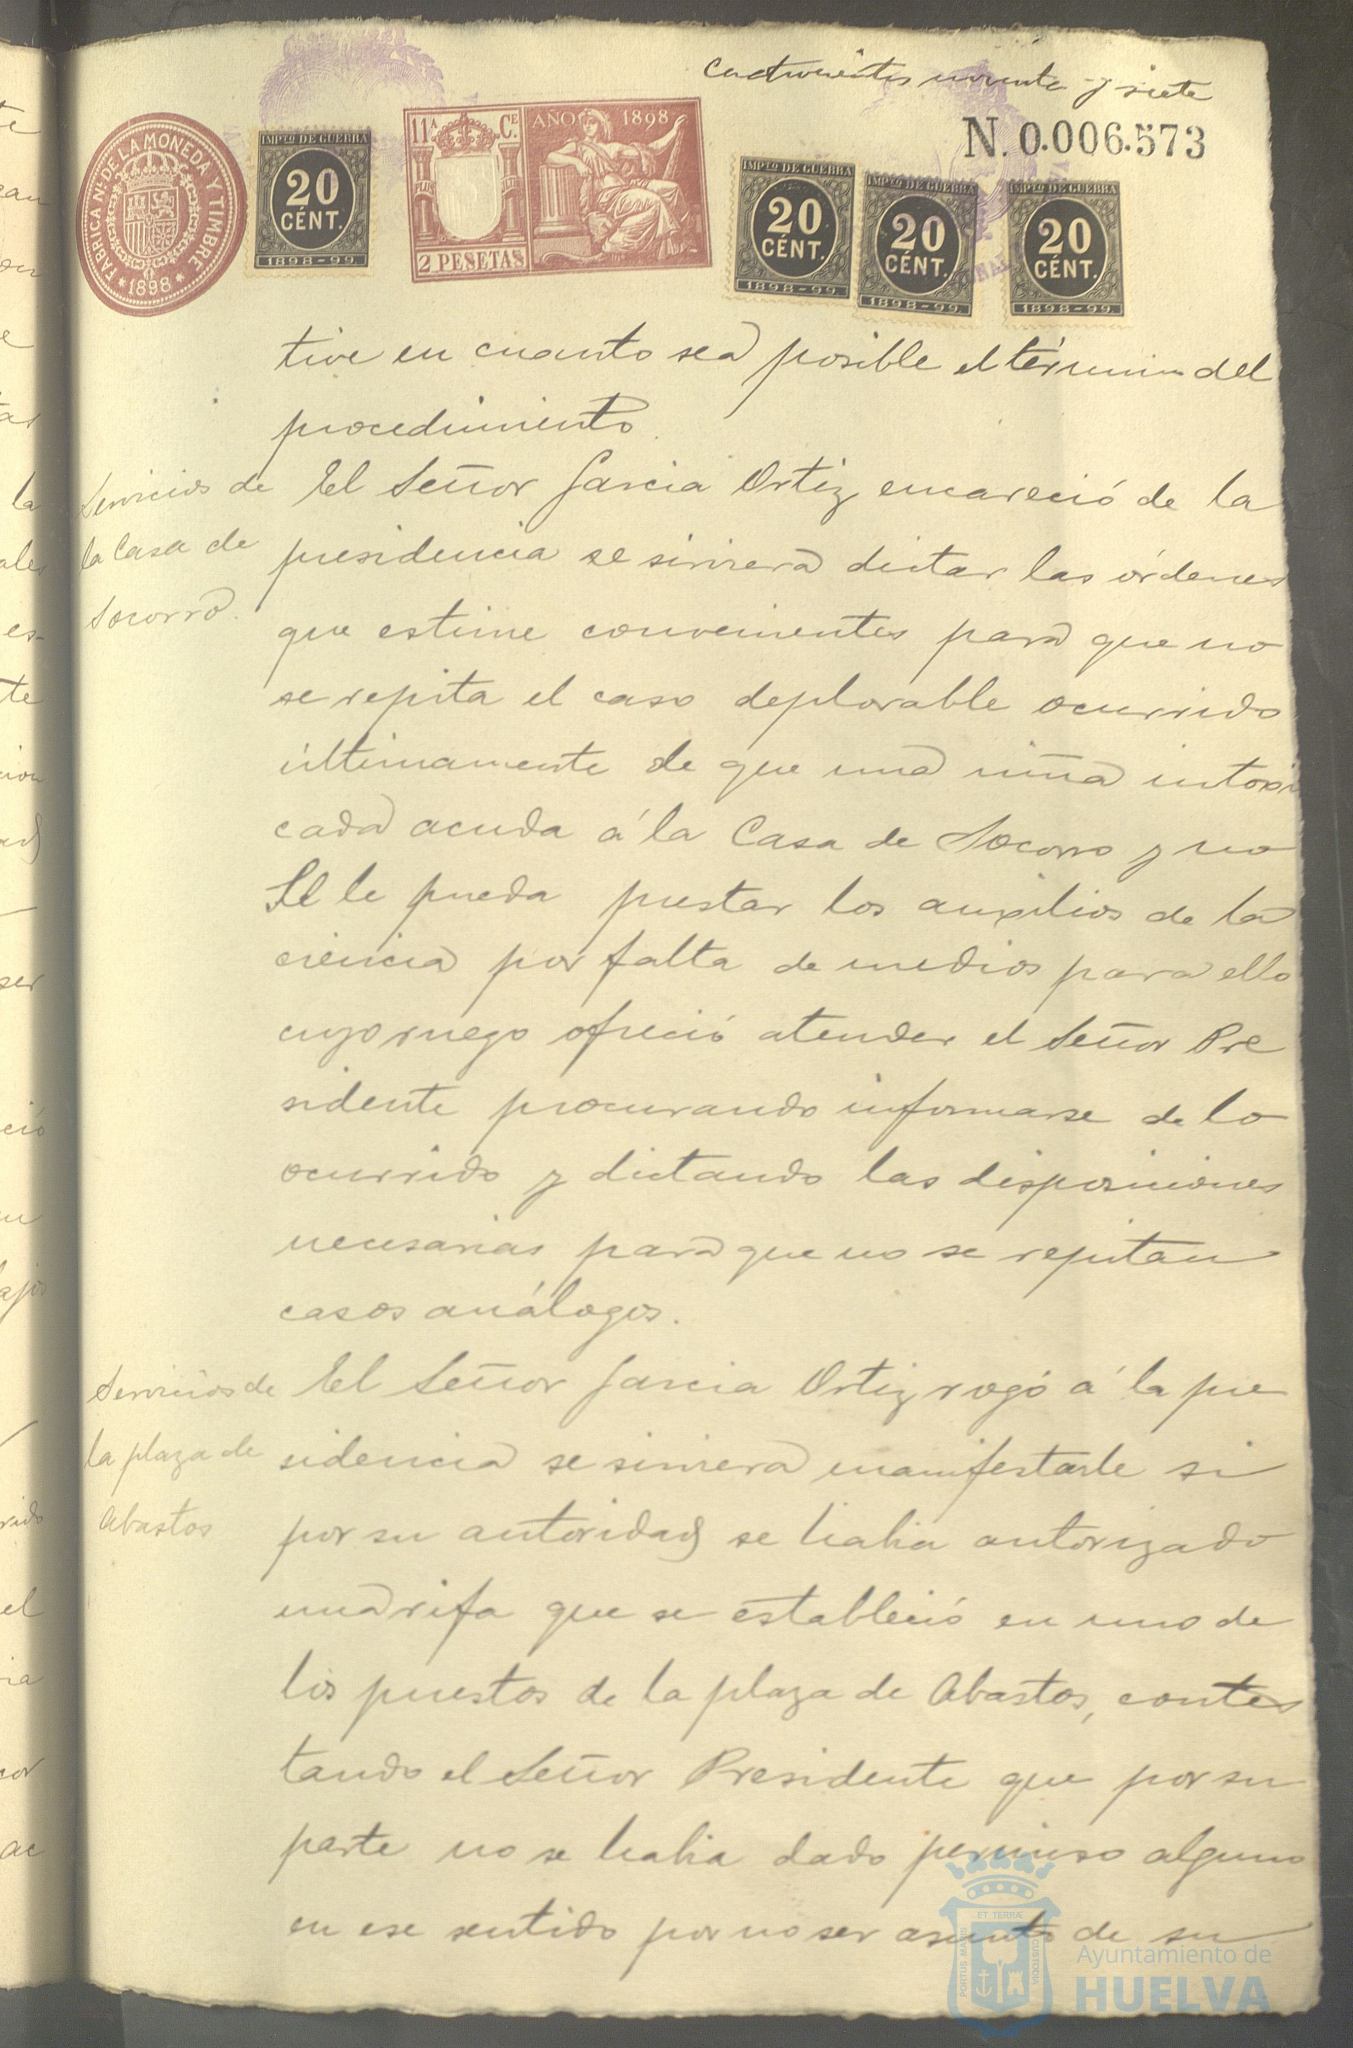 cuatrocientos noventa y siete
N. 0.006.573
FABRICA NL. DE LA MONEDA Y TIMBRE
* 1898 *
IMPTO DE GUERRA
20
CÉNT.
1898-99
11A CE
AÑO 1898
2 PESETAS
IMPTO DE GUERRA
20
CÉNT.
1898-99
IMPTO DE GUERRA
20
CÉNT.
1898-99
IMPTO DE GUERRA
20
CÉNT.
1898-99
tive en cuanto sea posible el término del
procedimiento
Servicios de
la Casa de
Socorro.
El Señor Garcia Ortiz encareció de la
presidencia se sirviera dictar las órdenes
que estime convenientes para que no
se repita el caso deplorable ocurrido
últimamente de que una niña intoxi
cada acuda á la Casa de Socorro y no
se le pueda prestar los auxilios de la
ciencia por falta de medios para ello
cuyo ruego ofreció atender el Señor Pre
sidente procurando informarse de lo
ocurrido y dictando las disposiciones
necesarias para que no se repitan
casos análogos.
Servicios de
la plaza de
Abastos
El Señor Garcia Ortiz rogó á la pre
sidencia se sirviera manifestarle si
por su autoridad se habia autorizado
una rifa que se estableció en uno de
los puestos de la plaza de Abastos, contes
tando el Señor Presidente que por su
parte no se habia dado permiso alguno
en ese sentido por no ser asunto de su
PORTUS MARIS ET TERRÆ CUSTODIA
Ayuntamiento de
HUELVA